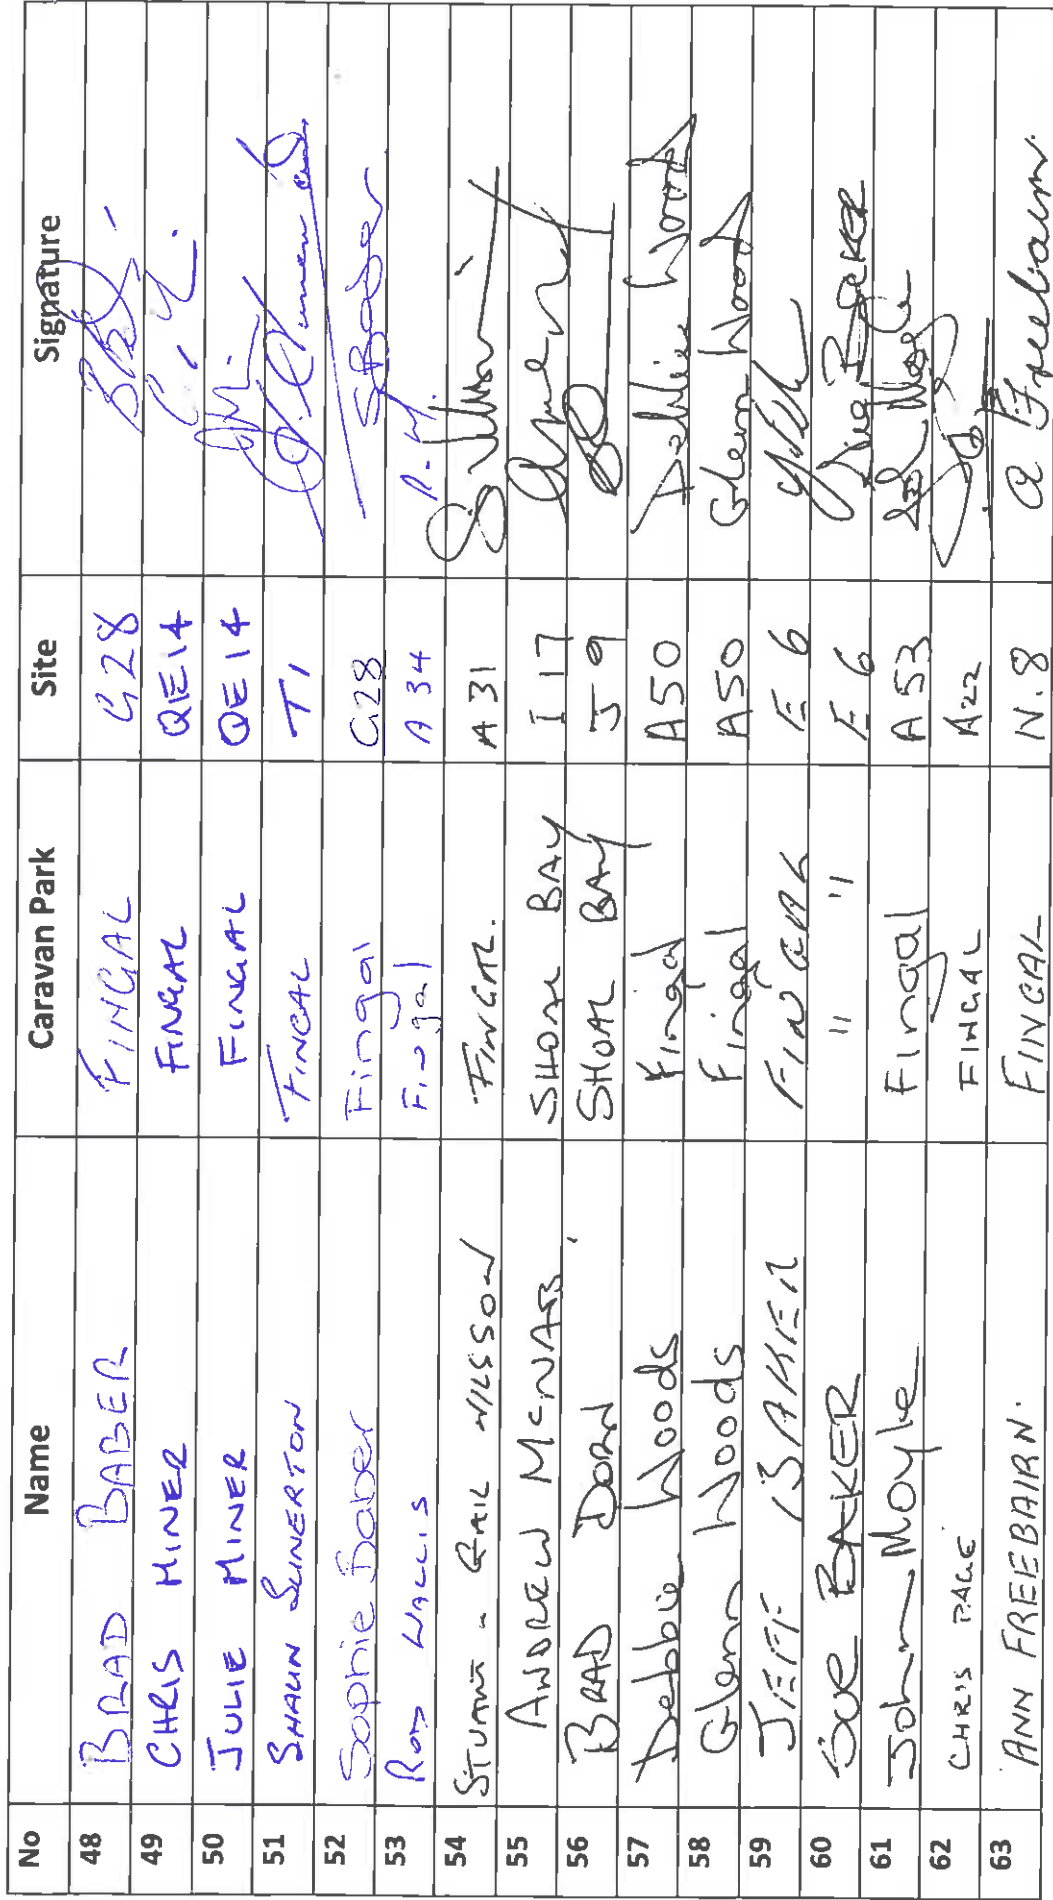 No Name Caravan Park Site Signature
48 BRAD BABER FINGAL G28
49 CHRIS MINER FINGAL QE14
50 JULIE MINER FINGAL QE14
51 SHAUN FINGAL T1
52 Sophie Baber Fingal G28 SBaber
53 ROD WALLIS Fingal A34 R.W.
54 STUART - GAIL WILSSON FINGAL. A31
55 ANDREW McNAB SHOAL BAY I17
56 BRAD DORN SHOAL BAY J9
57 Debbie Woods Fingal A50 Debbie Woods
58 Glenn Woods Fingal A50 Glenn Woods
59 JEFF BAKER E6
60 SUE BAKER " " E6
61 John Moyle Fingal A53
62 CHRIS PAGE FINGAL A22
63 ANN FREEBAIRN. FINGAL N.8 A Freebairn.